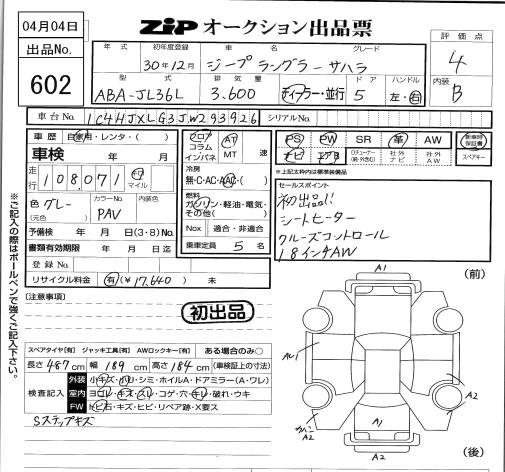 04月04日
出品No.
602
ZIP オークション出品票
評価点
4
内装
B
年式 初年度登録 車名 グレード
30年12月 ジープ ラングラー サハラ
型式 排気量 ドア ハンドル
ABA-JL36L 3.600 ディーラー・並行 5 左・右
車台No. 1C4HJXLG3JW293926 シリアルNo.
車歴 自家用・レンタ・( )
車検 年 月
走行 108,071 km マイル
色 グレー カラーNo. PAV 内装色
(元色)
予備検 年 月 日(3・8)No.
書類有効期限 年 月 日迄
登録No.
リサイクル料金 有(¥17,640) 未
フロア コラム インパネ
AT MT 速
冷房
無・C・AC・AAC・( )
燃料
ガソリン・軽油・電気・その他( )
Nox 適合・非適合
乗車定員 5 名
PS PW SR 革 AW
ナビ エアB 社外ナビ 社外AW
新車時保証書
スペアキー
※上記太枠内は標準装備品
セールスポイント
初出品!!
シートヒーター
クルーズコントロール
18インチAW
※ご記入の際はボールペンで強くご記入下さい。
(注意事項)
初出品
スペアタイヤ[有] ジャッキ工具[有] AWロックキー[有] ある場合のみ○
長さ 487 cm 幅 189 cm 高さ 184 cm (車検証上の寸法)
検査記入
外装 小キズ・小凹・シミ・ホイルA・ドアミラー(A・ワレ)
室内 ヨゴレ・キズ・スレ・コゲ・穴・キレ・破れ・ウキ
FW トビ石・キズ・ヒビ・リペア跡・X要ス
Sステップキズ
(前)
A1
AU1
A2
A2
A1
A2
(後)